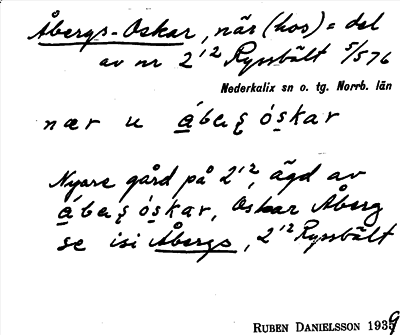 Åbergs-Oskar, när (hos) = del
av nr 2¹² Ryssbält 5/5 76
Nederkalix sn o. tg. Norrb. län
nær u ábeʂ óskar
Nyare gård på 2¹², ägd av
ábeʂ óskar, Oskar Åberg
se isi Åbergs, 2¹² Ryssbält
RUBEN DANIELSSON 1939